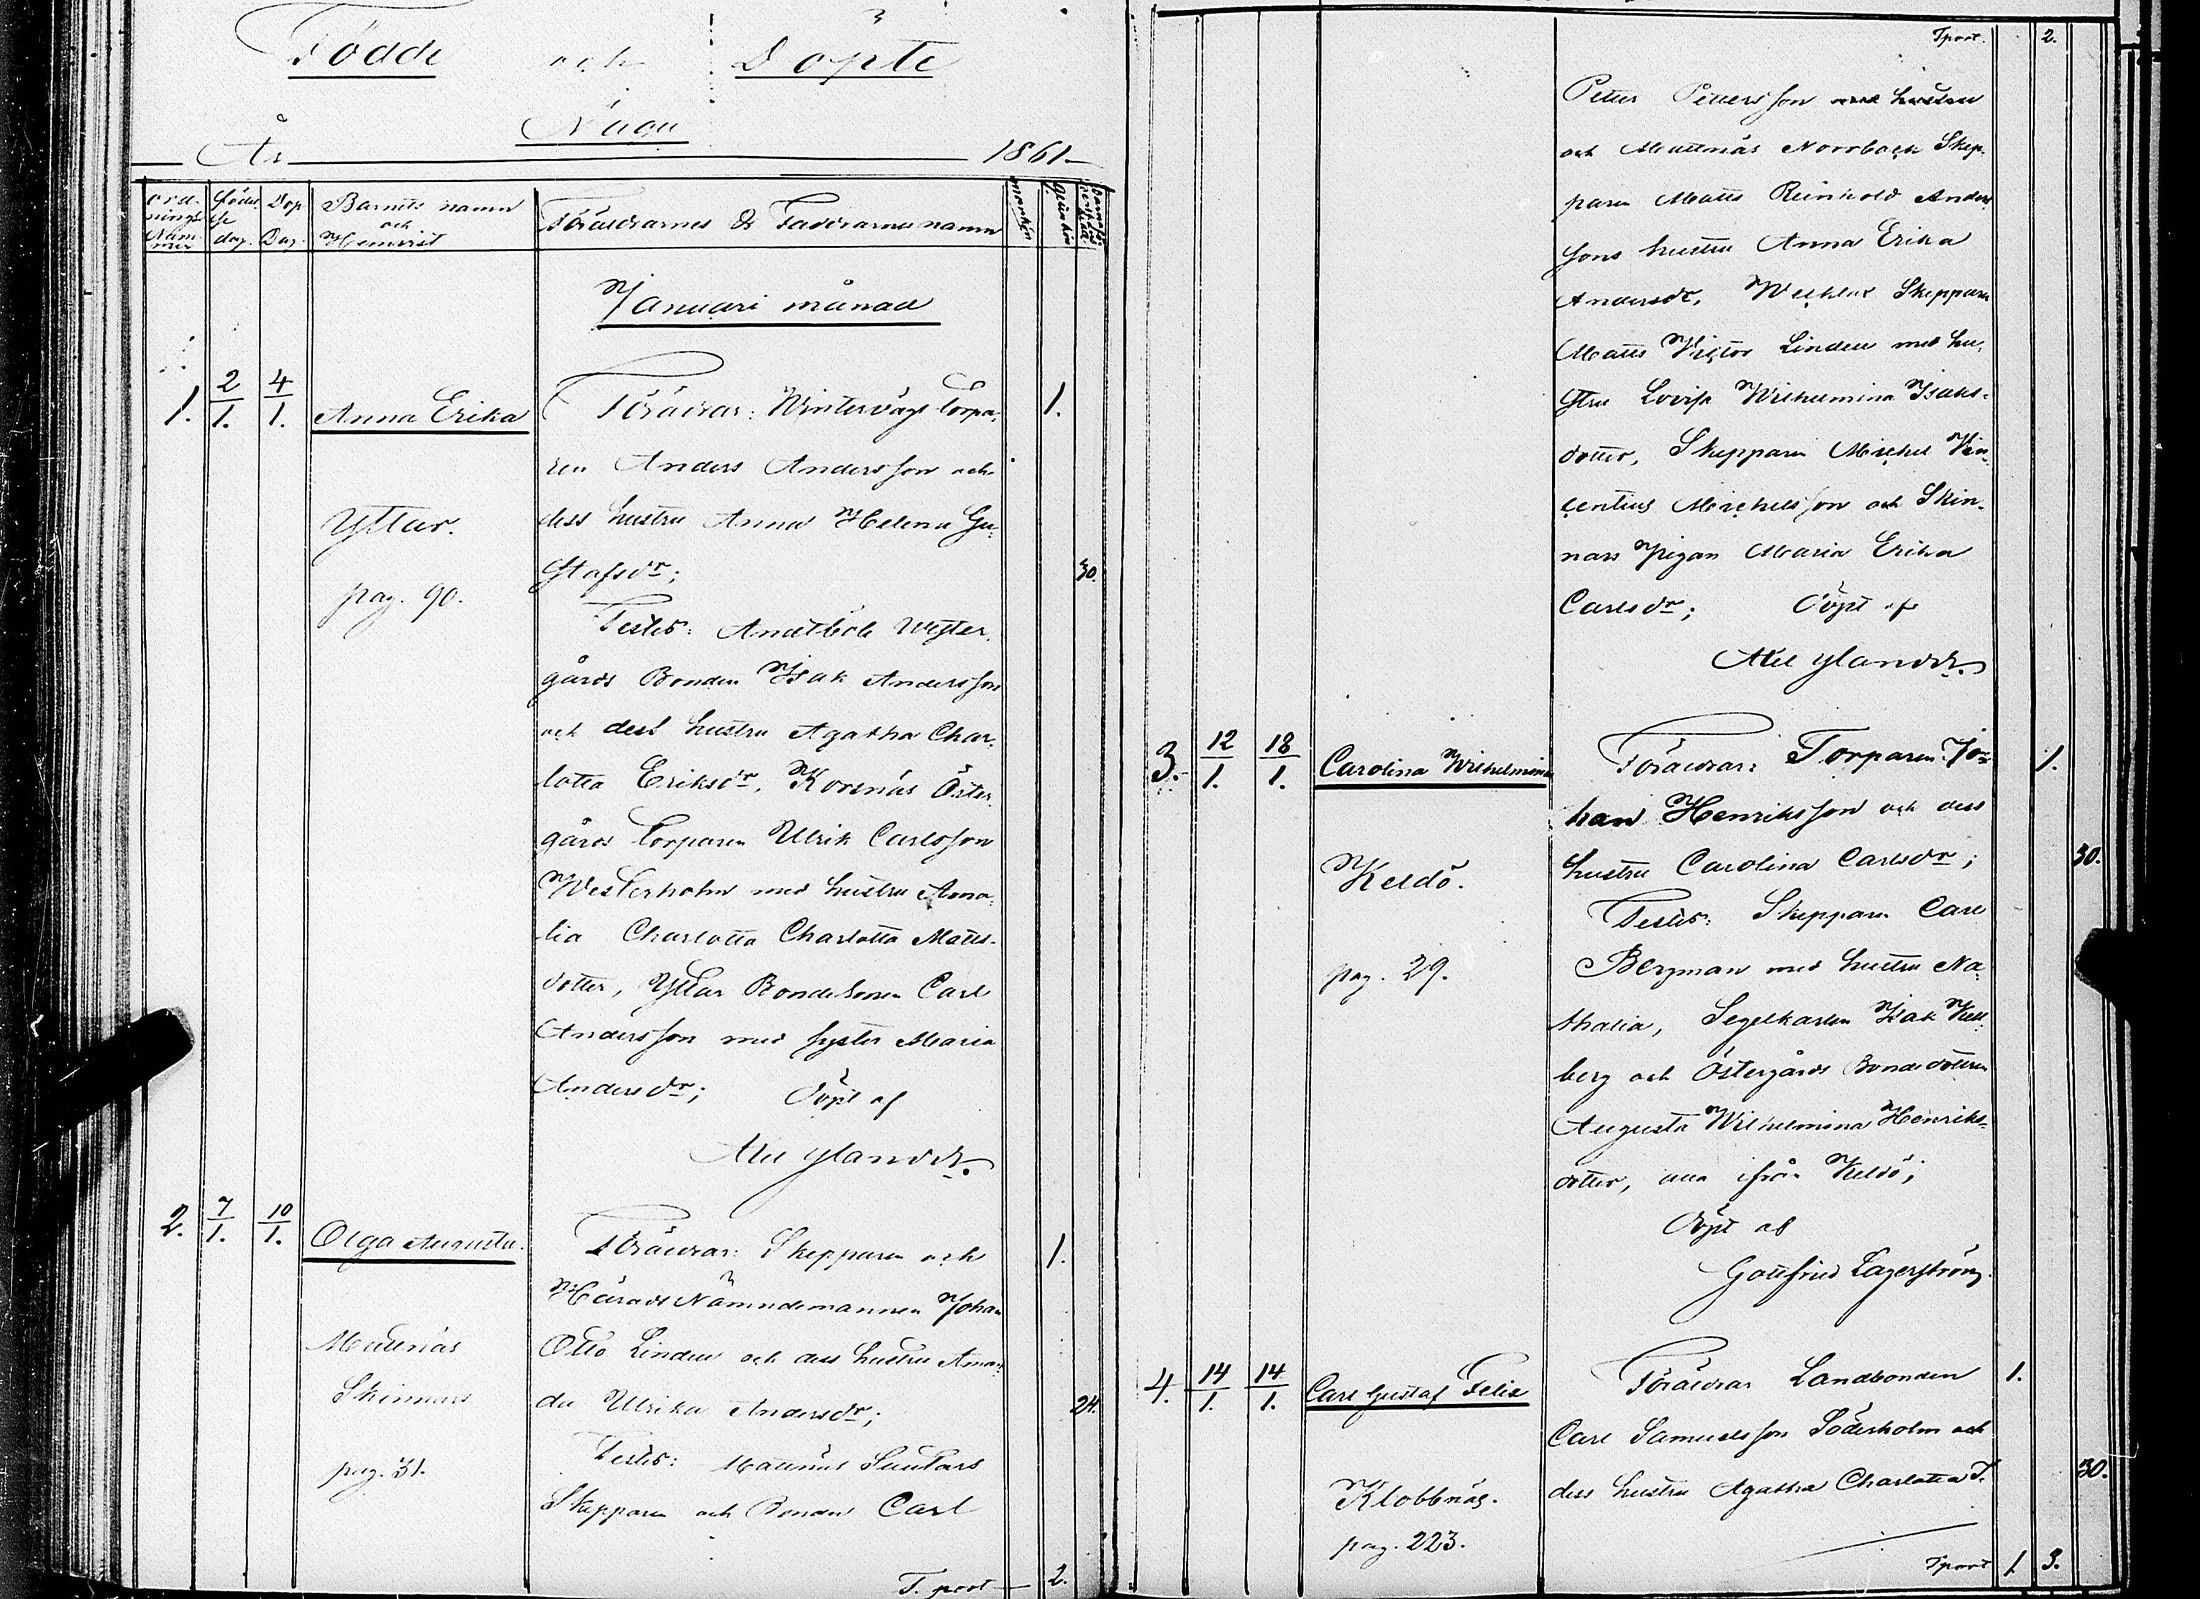 Födde och Döpte
Nagu
År 1861
Ord-
nings
Num-
mer
Födel-
se
dag.
Dop
Dag.
Barnets namn
och
Hemvist
Föräldrarnes & Faddrarnes namn
mankön
qvinkön
Januari månad
1. 2/1. 4/1. Anna Erika
Yttar.
pag. 90.
Föräldrar: Wintervägs Torpa-
ren Anders Andersson och
dess hustru Anna Helena Gu-
stafsdr;
Testes: Andtböle Wester-
gårds Bonden Isak Andersson
och dess hustru Agatha Char-
lotta Eriksdr, Korsnäs Öster-
gårds Torparen Ulrik Carlsson
Westerholm med hustru Ama-
lia Charlotta Charlotta Matts-
dotter, Yttar Bondesonen Carl
Andersson med syster Maria
Andersdr; Döpt af
1. 30.
2. 7/1. 10/1. Olga Augusta.
Mattnäs
Skinnars
pag. 31.
Föräldrar: Skepparen och
Härads Nämndemannen Johan
Otto Linden och dess hustru Aman-
da Ulrika Andersdr;
Testes: Mattnäs
Skepparen och Bonden Carl
1. 24.
T. port 2.
Tport. 2.
Petter Pettersson med hustru
och Mattnäs Norrback Skep-
paren Matts Reinhold Anders-
sons hustru Anna Erika
Andersdr, Skepparen
Matts Victor Linden med hu-
stru Lovisa Wilhelmina Isaks-
dotter, Skepparen Michel Vin-
centius Michelsson och Skin-
nars Pigan Maria Erika
Carlsdr; Döpt af
3. 12/1. 18/1. Carolina Wilhelmina
Keldö.
pag. 29.
Föräldrar: Torparen Jo-
han Henriksson och dess
hustru Carolina Carlsdr;
Testes: Skepparen Carl
Bergman med hustru Na-
thalia, Segelkarlen Isak Kell-
berg och Östergårds Bondedottren
Augusta Wilhelmina Henriks-
dotter, alla ifrån Keldö;
Döpt af
Gottfried Lagerström.
1. 30.
4. 14/1. 14/1. Carl Gustaf Felix
Klobbnäs.
pag. 223.
Föräldrar Landbonden
Carl Samuelsson Söderholm och
dess hustru Agatha Charlotta T.
1. 30.
Tport 1. 3.